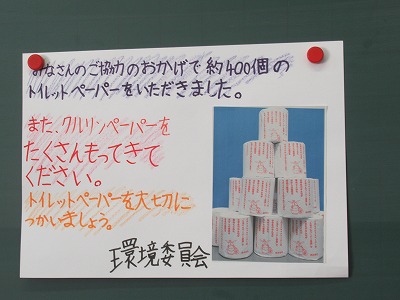 みなさんのご協力のおかげで約400個の
トイレットペーパーをいただきました。
また、クルリンペーパーを
たくさんもってきて
ください。
トイレットペーパーを大切に
つかいましょう。
環境委員会